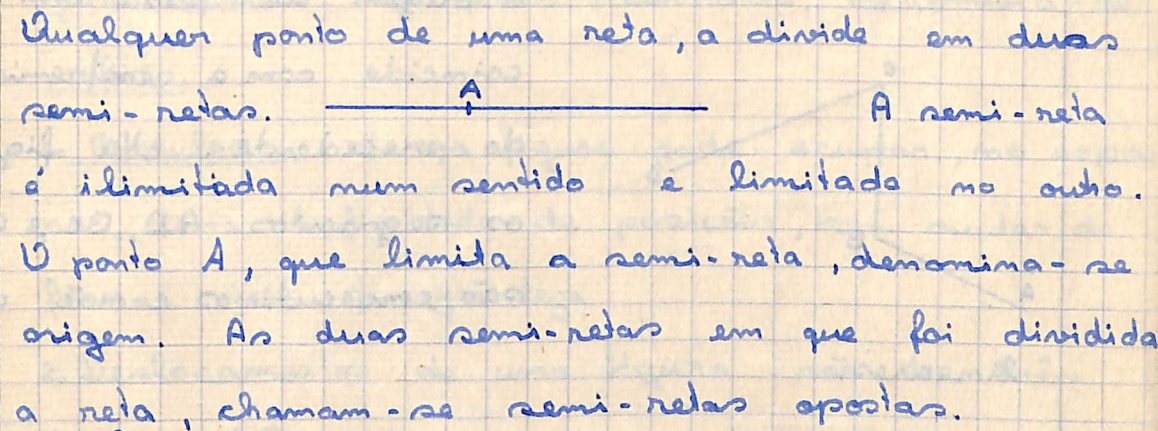 Qualquer ponto de uma reta, a divide em duas
semi-retas. A A semi-reta
é ilimitada num sentido e limitada no outro.
O ponto A, que limita a semi-reta, denomina-se
origem. As duas semi-retas em que foi dividida
a reta, chamam-se semi-retas opostas.